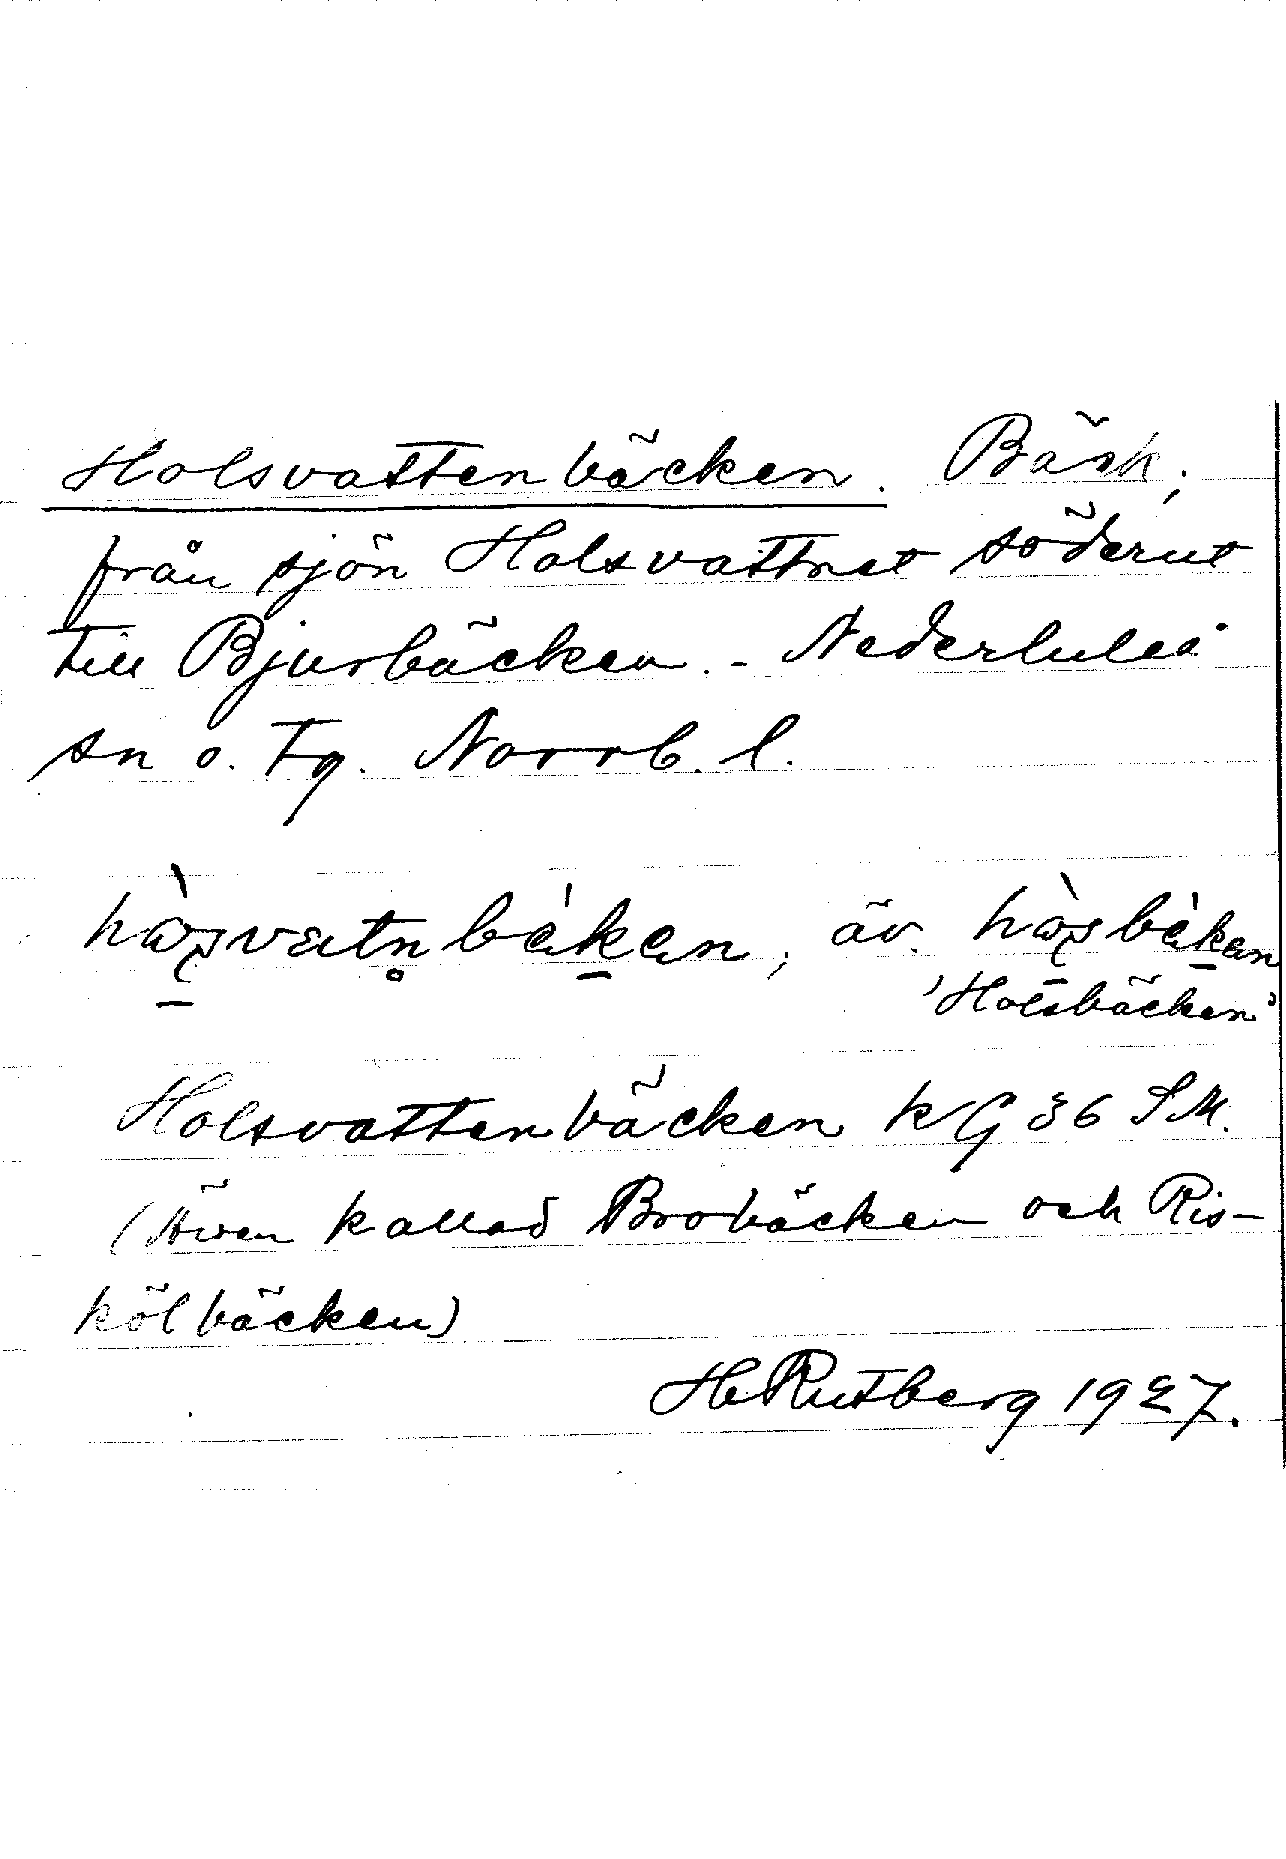 Holsvattenbäcken. Bäck,
från sjön Holsvattnet söderut
till Bjurbäcken. - Nederluleå
sn o. tg. Norrb. l.
äv.
'Holsbäcken'
Holsvattenbäcken kG 36 SM.
(Även kallad Brobäcken och Ris-
kölbäcken)
H Rutberg 1927.